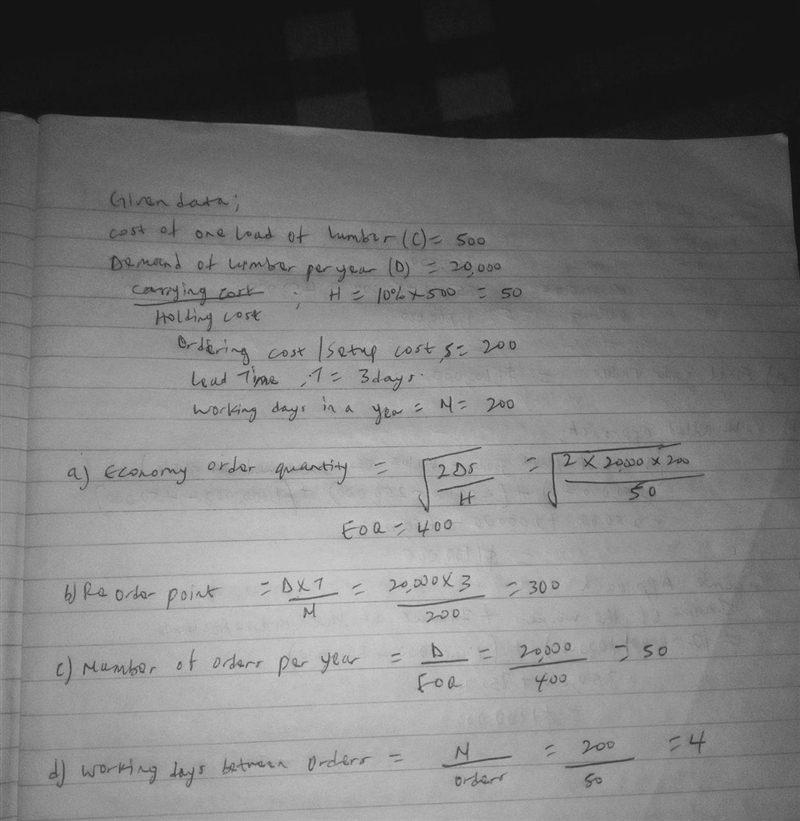 Given data;
Cost of one load of lumber (C) = 500
Demand of lumber per year (D) = 20,000
Carrying cost / Holding cost ; H = 10% x 500 = 50
Ordering cost / Setup cost, S = 200
Lead Time, T = 3 days.
Working days in a year = N = 200
a) Economy order quantity = √(2DS / H) = √(2 x 20,000 x 200 / 50)
EOQ = 400
b) Re order point = D x T / N = 20,000 x 3 / 200 = 300
c) Number of orders per year = D / EOQ = 20,000 / 400 = 50
d) Working days between orders = N / orders = 200 / 50 = 4